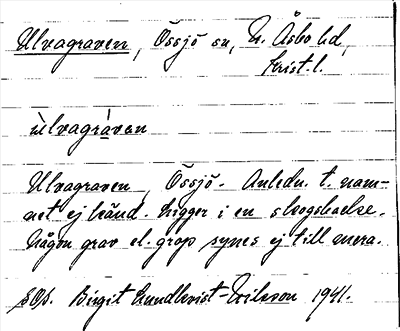 Ulvagraven, Össjö sn, N. Åsbo hd,
Krist. l.
ùlvagráven
Ulvagraven, Össjö. Anledn. t. nam-
net ej känd. Ligger i en skogsbacke.
Någon grav el. grop synes ej till mera.
Birgit Lundkvist-Nilsson 1941.